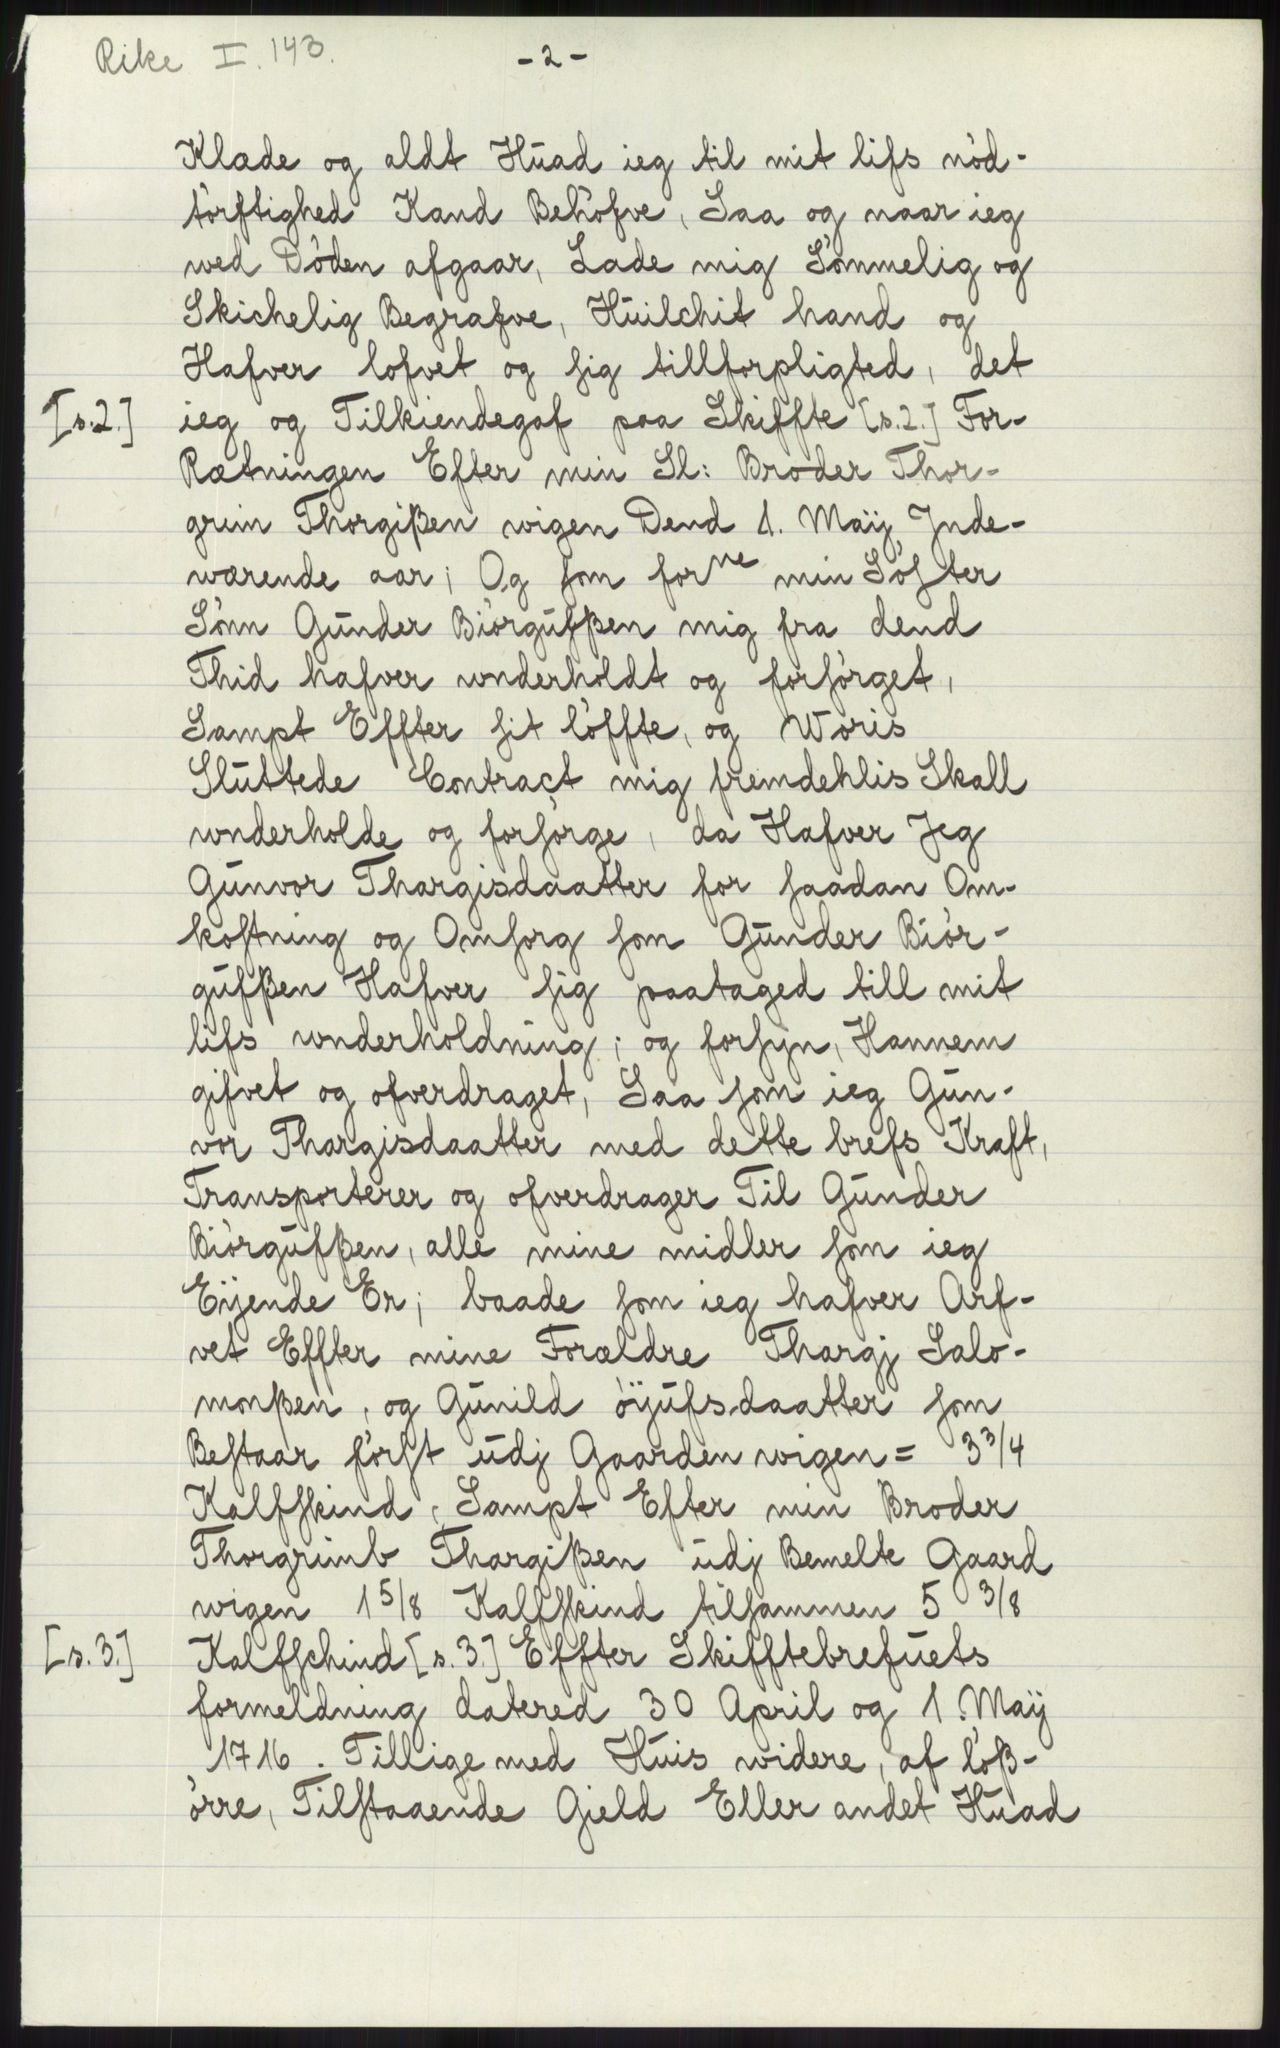 Rike I. 143.
- 2 -
Klæde og aldt Huad ieg til mit lifs nød-
tørftighed Kand Behøfve, Saa og naar ieg
wed Døden afgaar, Lade mig Sømmelig og
Skichelig Begrafve, Huilchit hand og
Hafver lofvet og sig tillforpligted, det
[s.2.] ieg og Tilkiendegaf paa Skiffte [s.2.] For-
Rætningen Efter min Sl: Broder Thor-
grim Thorgißen wigen Dend 1. Maÿ Inde-
wærende aar; Og som forne min Søster
Sønn Gunder Biørgufßen mig fra dend
Thid hafver wnderholdt og forsørget,
Sampt Effter sit løffte, og Woris
Sluttede Contract mig fremdehlis Skall
wnderholde og forsørge, da Hafver Jeg
Gunvor Thargisdaatter for saadan Om-
kostning og Omsorg som Gunder Biør-
gufßen Hafver sig paataged till mit
lifs wnderholdning; og forsyn, Hannem
gifvet og ofverdraget, Saa som ieg Gun-
vor Thargisdaatter med dette brefs Kraft,
Transporterer og ofverdrager Til Gunder
Biørgufßen, alle mine midler som ieg
Eÿende Er; baade som ieg hafver Arf-
vet Effter mine Forældre Thargj Salo-
monßen, og Gunild øÿufsdaatter som
Bestaar først udj Gaarden wigen = 3 3/4
Kalfskind, Sampt Efter min Broder
Thorgrimb Thargißen udj Bemelte Gaard
wigen 1 5/8 Kalfskind tilsammen 5 3/8
[s.3.] Kalfschind [s.3.] Effter Skifftebrefuets
formeldning datered 30 April og 1. Maÿ
1716. Tillige med Huis widere, af løß-
ørre, Tilstaaende Gield Eller andet Huad